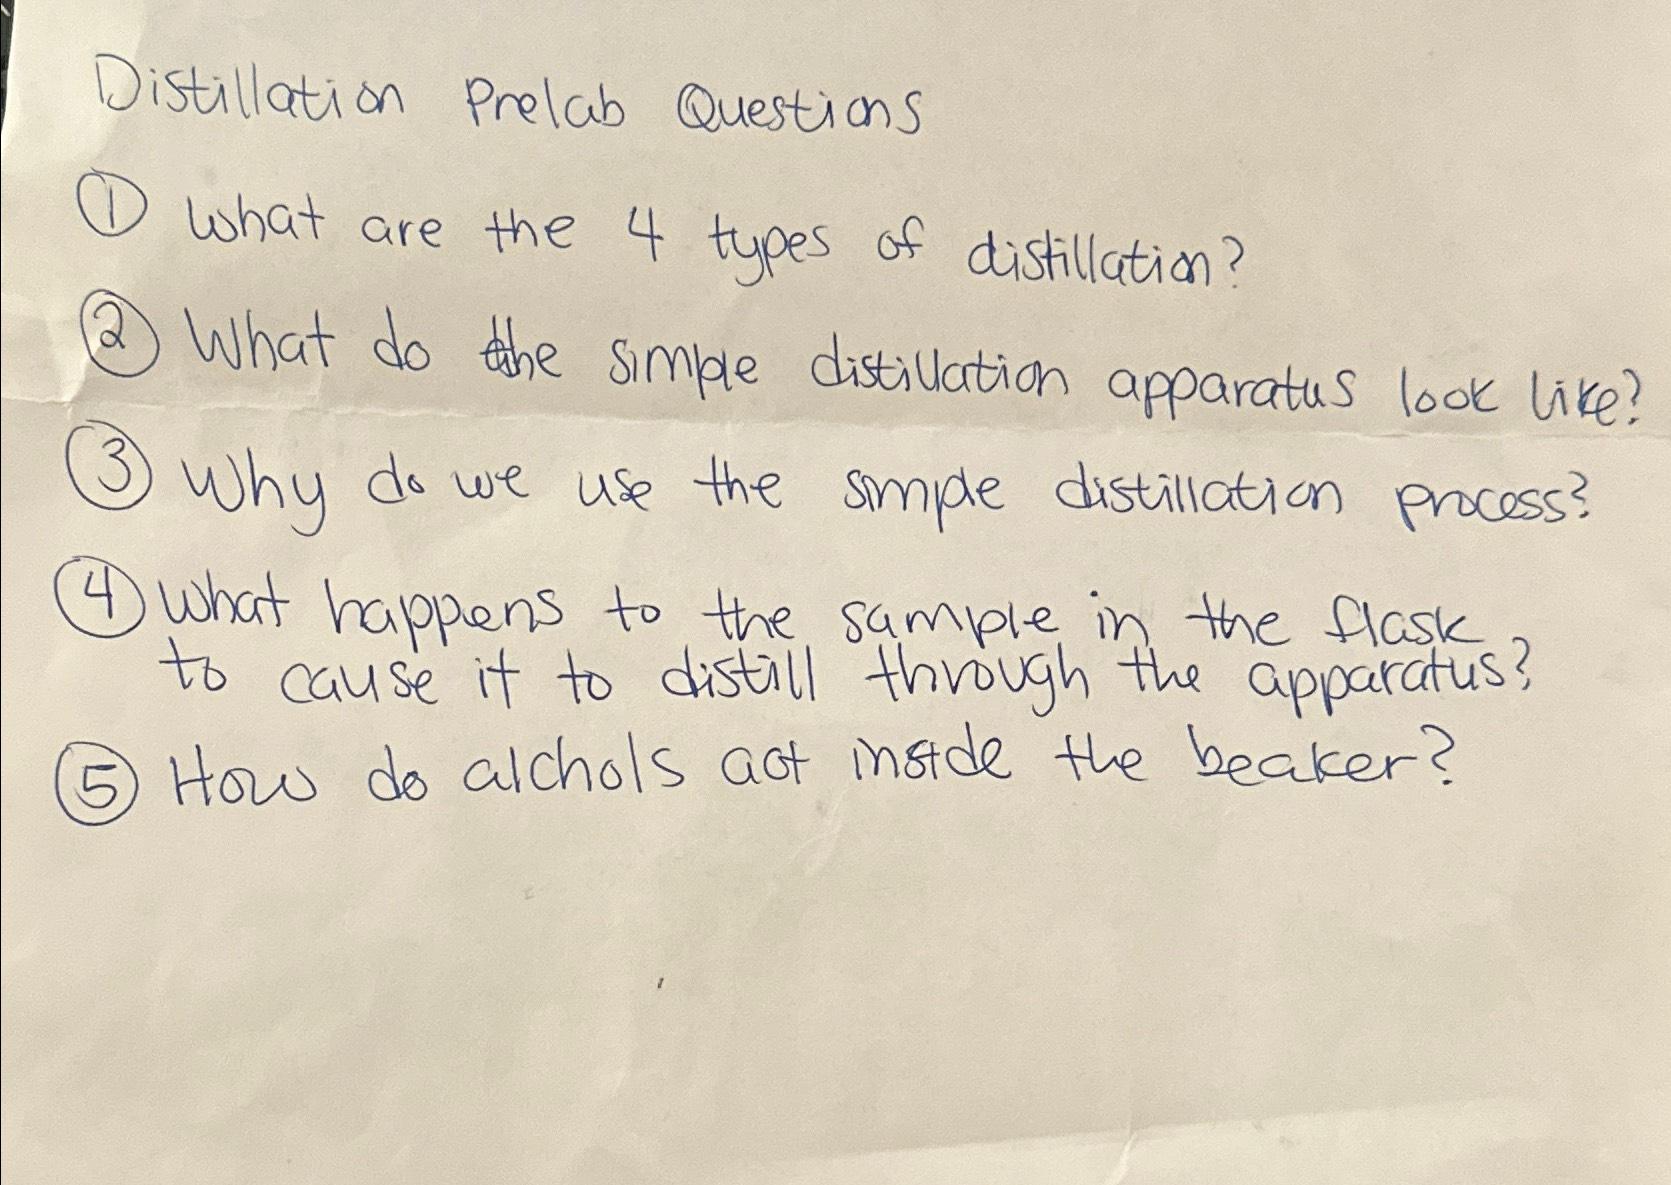 Distillation Prelab Questions
① What are the 4 types of distillation?
② What do the simple distillation apparatus look like?
③ Why do we use the simple distillation process?
④ What happens to the sample in the flask
to cause it to distill through the apparatus?
⑤ How do alchols act inside the beaker?